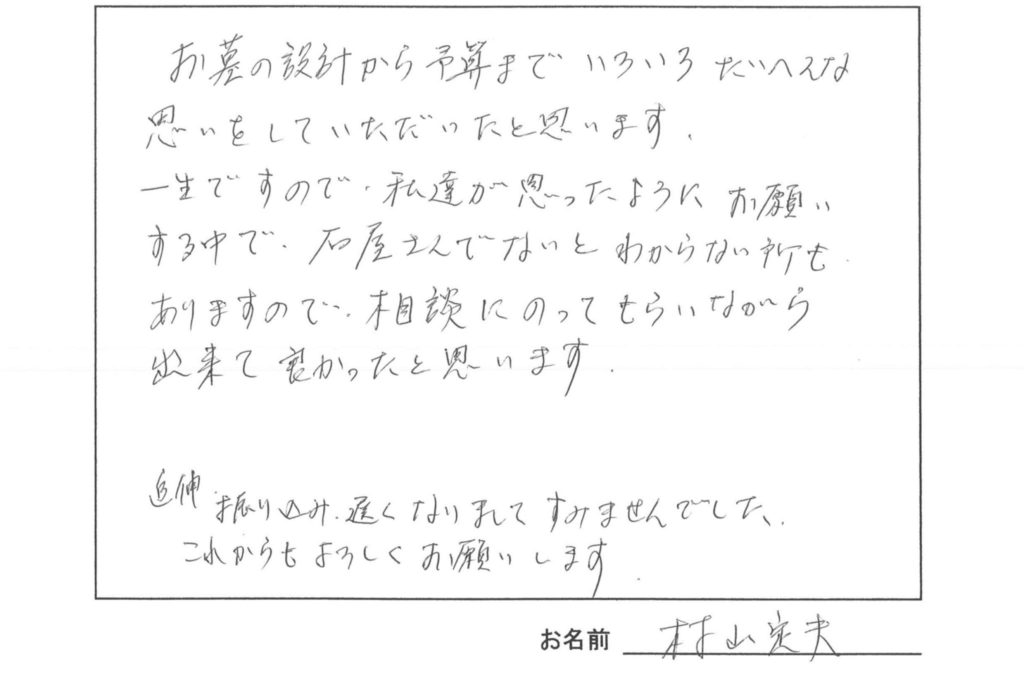 お墓の設計から予算まで いろいろ たいへんな
思いをしていただいたと思います.
一生ですので、私達が思ったように お願い
する中で、石屋さんでないと わからない所も
ありますので、相談にのってもらいながら
出来て良かったと思います.
追伸 振り込み、遅くなりまして すみませんでした、
これからも よろしく お願いします.
お名前 村山定夫